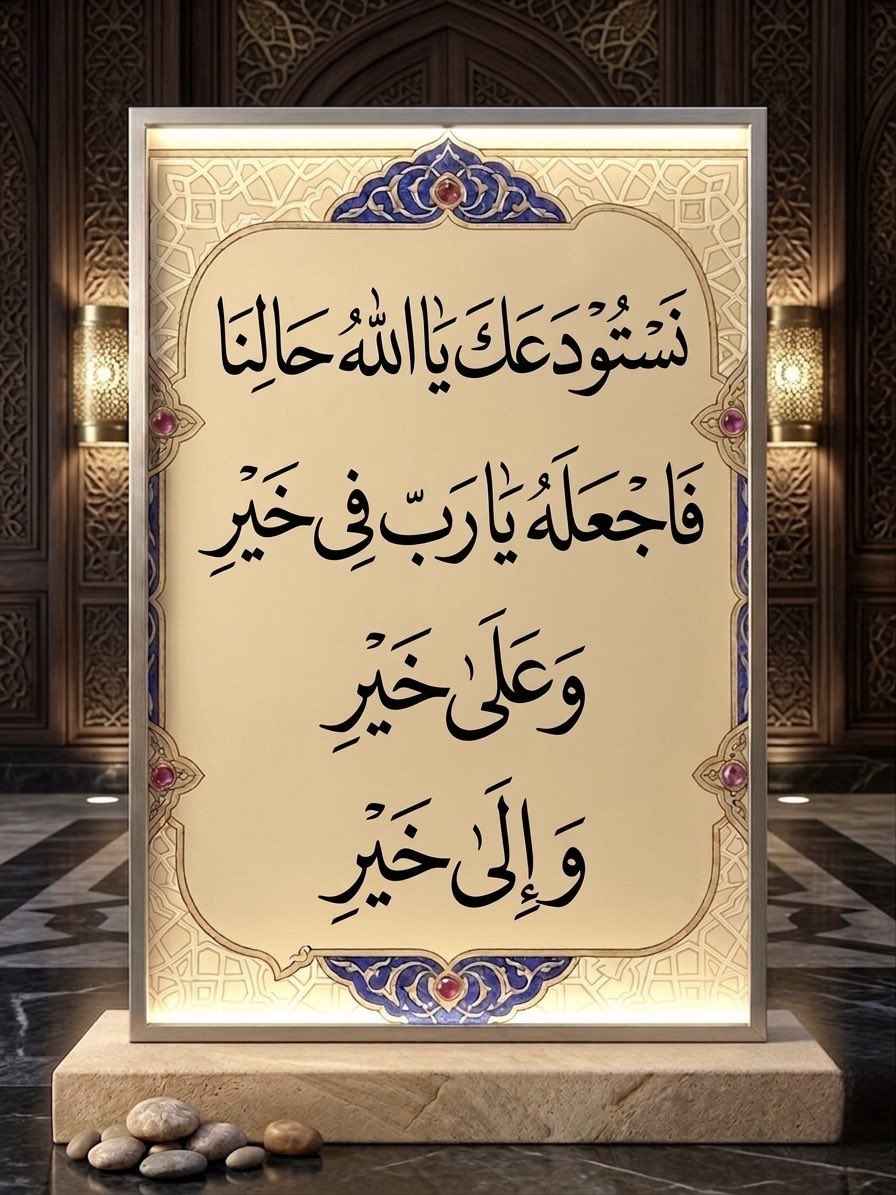 نَسْتُوْدَعَكَ يَا اللّٰهُ حَالِنَا
فَاجْعَلَهُ يَا رَبّ فِى خَيْرِ
وَعَلَىٰ خَيْرِ
وَإِلَىٰ خَيْرِ